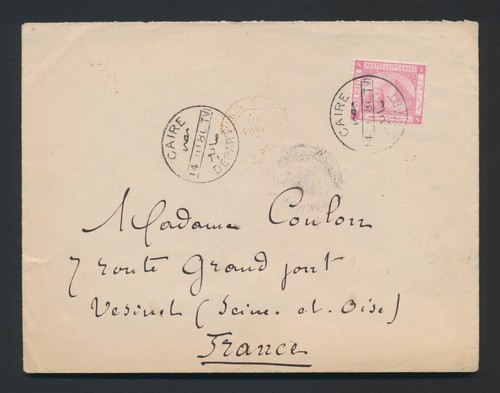 CAIRE
DEPART
CAIRE
POSTES EGYPTIENNES
Madame Coulon
7 route Grand pont
Vesinet (Seine-et-Oise)
France